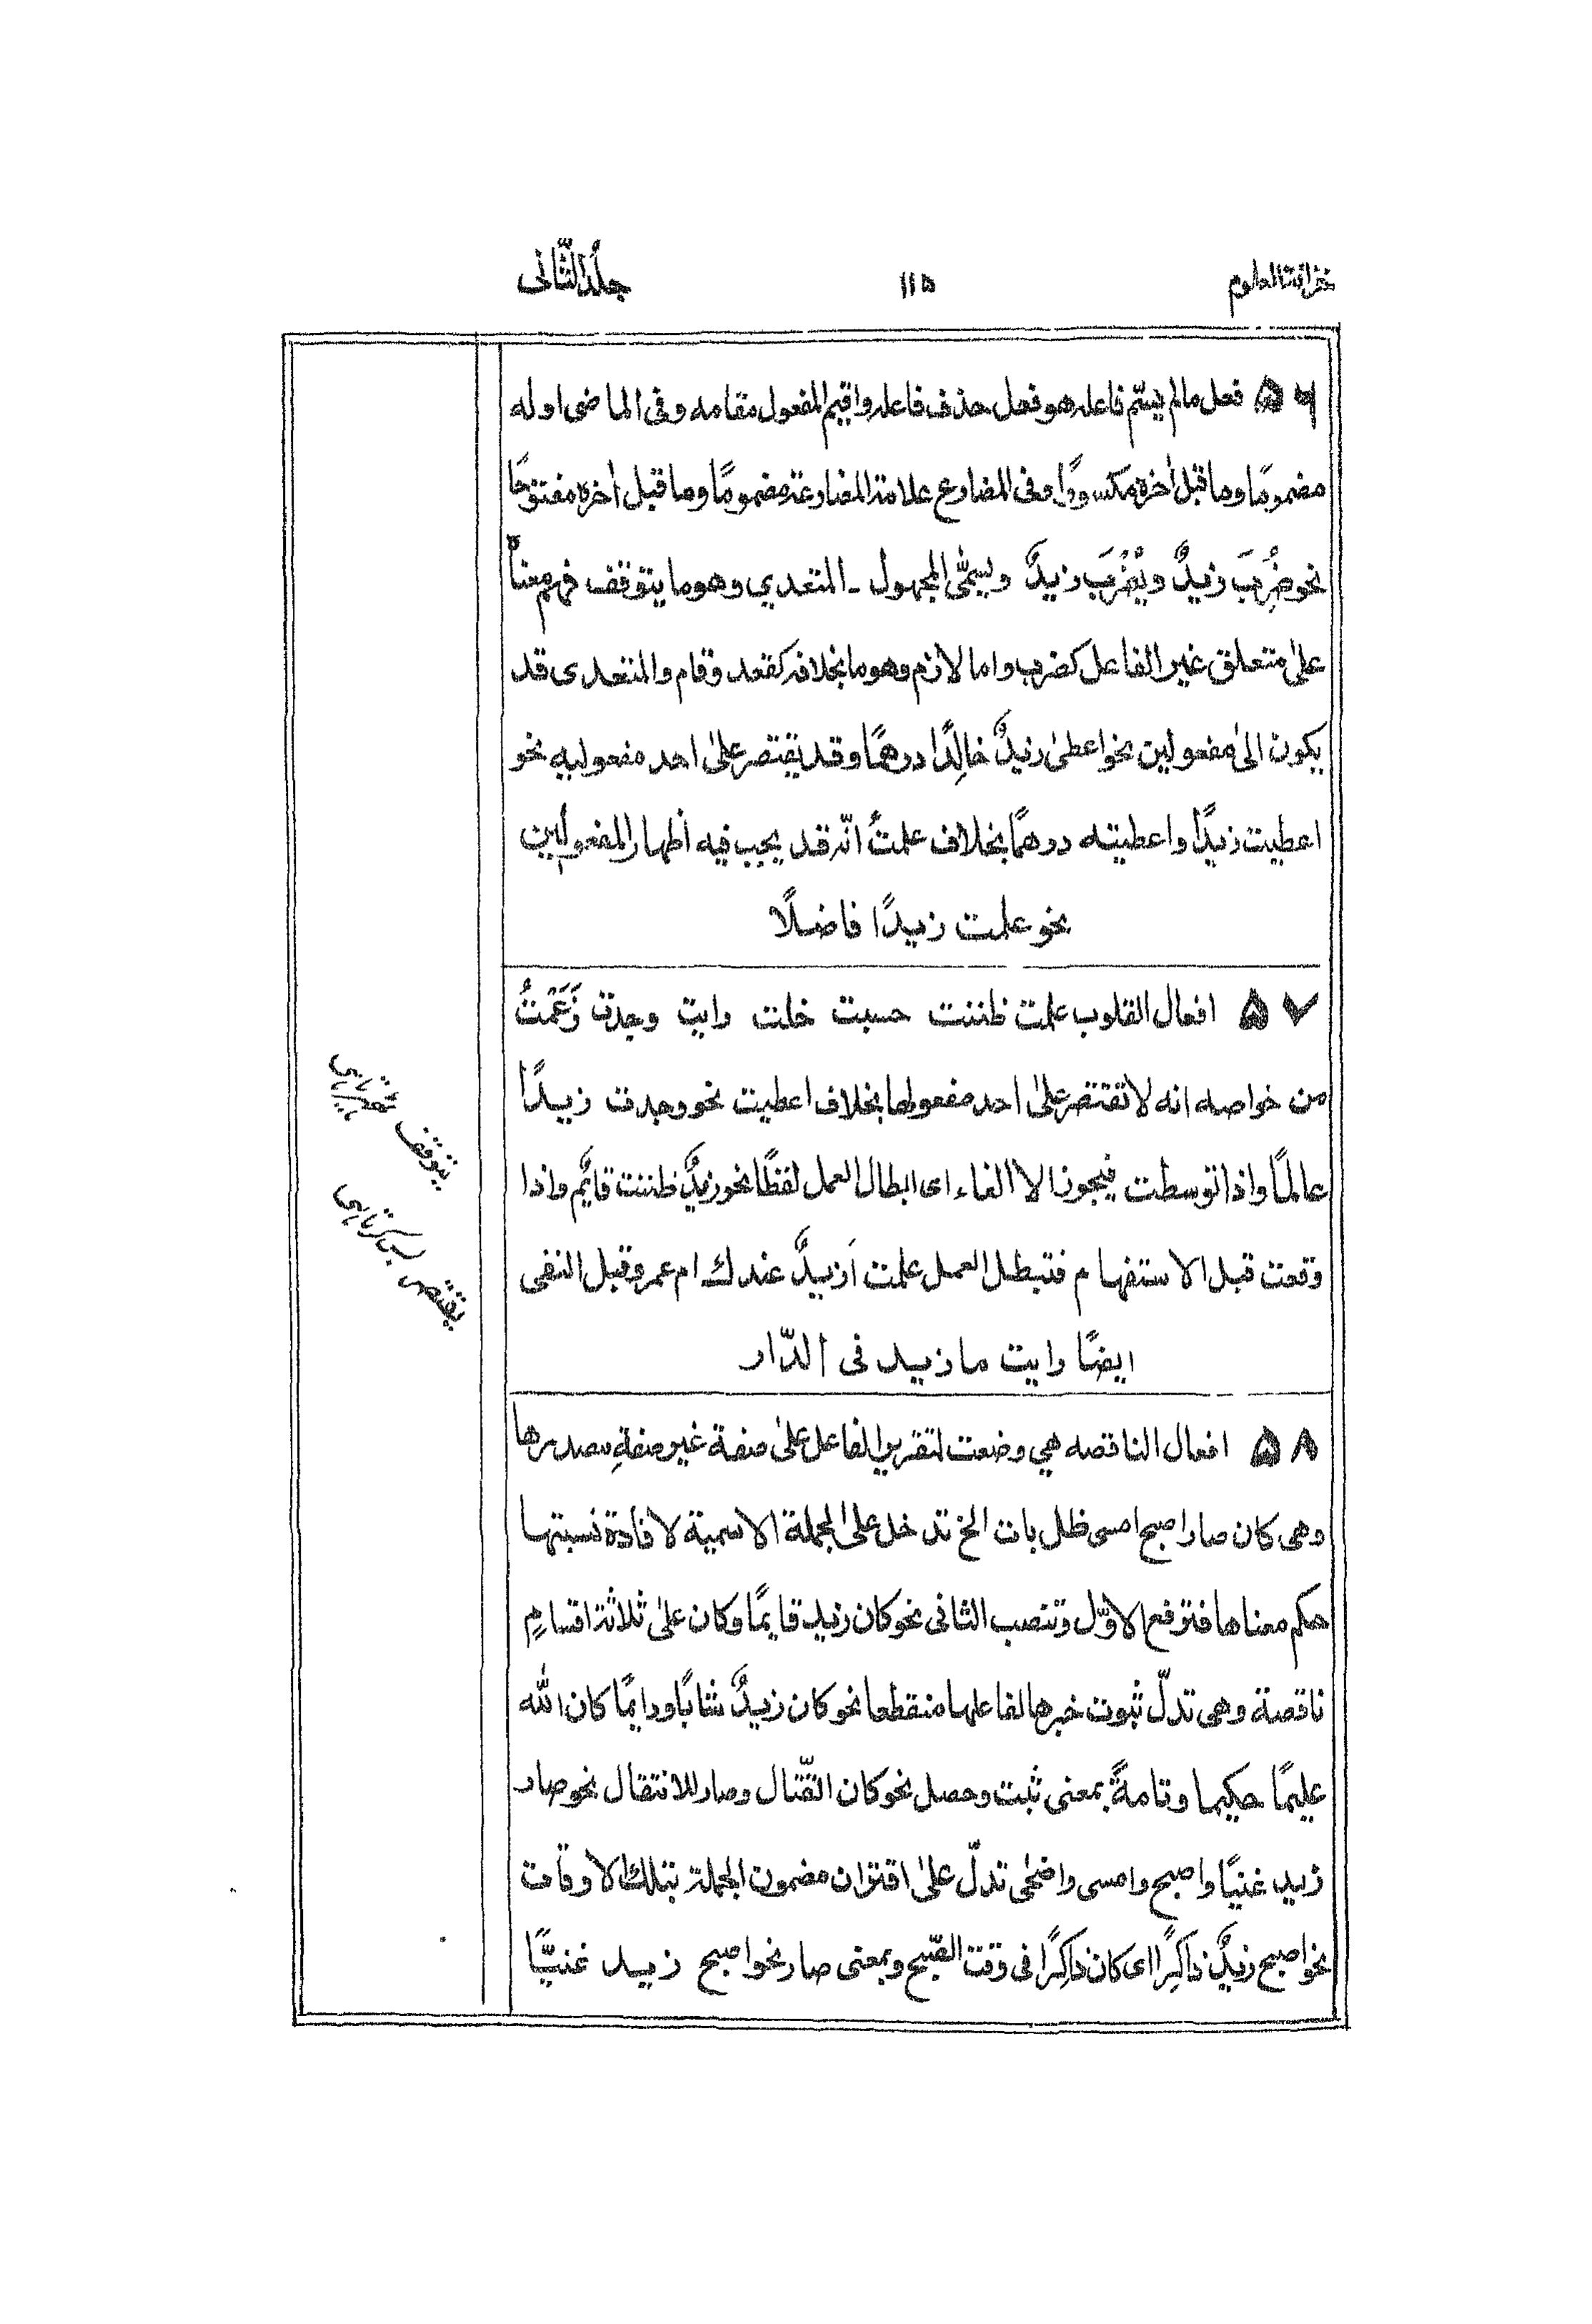 خزانة العلوم ۱۱۵ جلدُ الثّانی
۵۶ فعل مالم یسمّ فاعله هو فعل حذف فاعله واقیم المفعول مقامه وفی الماضی اوله
مضمومًا وما قبل اٰخره مکسورًا وفی المضارع علامة المضارعة مضمومًا وما قبل اٰخره مفتوحًا
نحو ضُرِبَ زیدٌ ویُضْرَبَ زیدٌ ویسمّٰی المجهول ـ المتعدی وهو ما یتوقف فهم معناہُ
علیٰ متعلق غیر الفاعل کضرب واما لازم وهو ما بخلافه کقعد وقام والمتعدی قد
یکون الیٰ مفعولین نحو اعطیٰ زیدٌ خالِدًا درهمًا وقد یقتصر علیٰ احد مفعولیه نحو
اعطیت زیدًا واعطیته درهمًا بخلاف علمتُ انّه قد یجب فیه اظهار المفعولین
نحو علمت زیدًا فاضلًا
۵۷ افعال القلوب علمت ظننت حسبت خلت رایت وجدت زَعَمْتُ
من خواصه انه لا تقتصر علیٰ احد مفعولها بخلاف اعطیت نحو وجدت زیدًا
عالمًا واذا توسطت فیجوز الا الغاء ای ابطال العمل لفظًا نحو زیدٌ ظننت قایمٌ واذا
وقعت قبل الاستفهام فتبطل العمل علمت اَزیدٌ عندك ام عمر وقبل النفی
ایضًا رایت ما زید فی الدّار
۵۸ افعال الناقصه هي وضعت لتقریر الفاعل علیٰ صفة غیر صفةِ مصدرها
وهی کان صار اصبح امسی ظل بات الخ تدخل علی الجملة الاسمیة لا فادة نسبتها
حکم معناها فترفع الاوّل وتنصب الثانی نحو کان زید قایمًا وکان علیٰ ثلاثة اقسامٍ
ناقصة وهی تدلّ ثبوت خبرها لفاعلها منقطعا نحو کان زیدٌ شابًا ودایمًا کان اللّٰه
علیمًا حکیما وتامةً بمعنی ثبت وحصل نحو کان القّتال وصار للانتقال نحو صار
زید غنیًا واصبح وامسی واضحٰی تدلّ علیٰ اقتران مضمون الجملة بتلك الاوقات
نحو اصبح زیدٌ ذاکِرًا ای کان ذاکِرًا فی وقت الصّبح وبمعنی صار نحو اصبح زید غنیًّا
یتوقف
یقتصر بس کرتا ہی